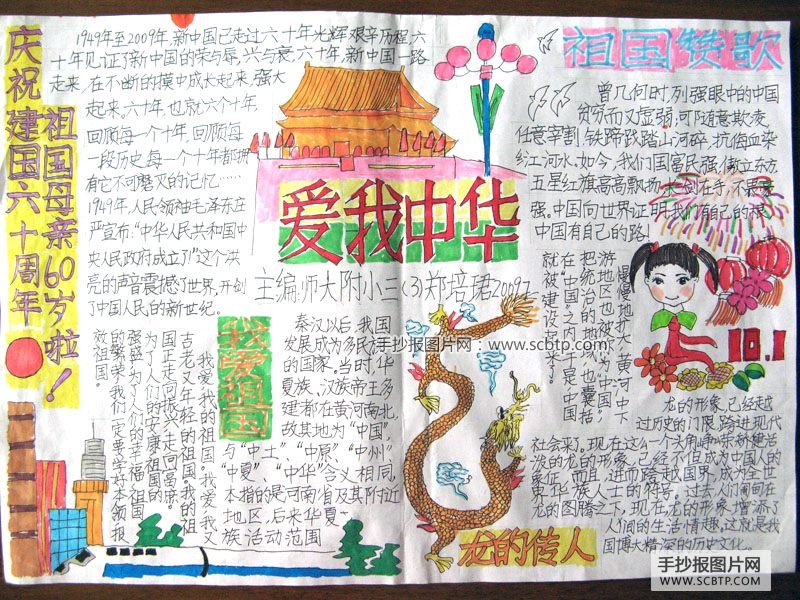 庆祝建国六十周年
祖国母亲60岁啦！
1949年至2009年,新中国已走过六十年光辉艰辛历程,六
十年见证了新中国的荣与辱,兴与衰,六十年,新中国一路
走来,在不断的摸中成长起来,强大
起来。六十年,也就六个十年,
回顾每一个十年,回顾每
一段历史,每一个十年都拥
有它不可磨灭的记忆……
1949年,人民领袖毛泽东庄
严宣布:“中华人民共和国中
央人民政府成立了!”这个洪
亮的声音震撼了世界,开创
了中国人民的新世纪。
爱我中华
主编:师大附小三(3)郑培珺2009.
祖国赞歌
曾几何时,列强眼中的中国
贫穷而又虚弱,可随意欺凌,
任意宰割,铁蹄践踏山河碎,抗侮血染
红江河水,如今,我们国富民强,傲立东方,
五星红旗高高飘扬,
强。中国向世界证明,我们有自己的根,
中国有自己的路!
10.1
慢慢地扩大,黄河中下
游地区也被包括,
把统治的地域也囊括
在“中国”之内,于是中国
就被建设起来了。
我爱祖国
古老又年轻的祖国。我的祖
国正走向振兴走向富庶。
为了人们的安康,祖国的
强盛,为了人们的幸福,祖国
的繁荣,我们一定要学好本领,报
效祖国。
秦汉以后,我国
发展成为多民族
的国家。当时,华
夏族、汉族帝王多
建都在黄河南北,
故其地为“中国”,
与“中土”、“中原”、“中州”、
“中夏”、“中华”含义相同,
本指的是河南省及其附近
地区,后来华夏
族活动范围
龙的传人
龙的形象,已经越
过历史的门限,跨进现代
社会来了。现在这么一个头角峥嵘东娇健活
泼的龙的形象,已经不但成为中国人的
象征,而且,进而跨越国界,成为全世
界华族人士的符号。过去人们匍匐在
龙的图腾之下,现在,龙的形象增添了
人间的生活情趣,这就是我
国博大精深的历史文化。
手抄报图片网：www.scbtp.com
手抄报图片网
WWW.SCBTP.COM